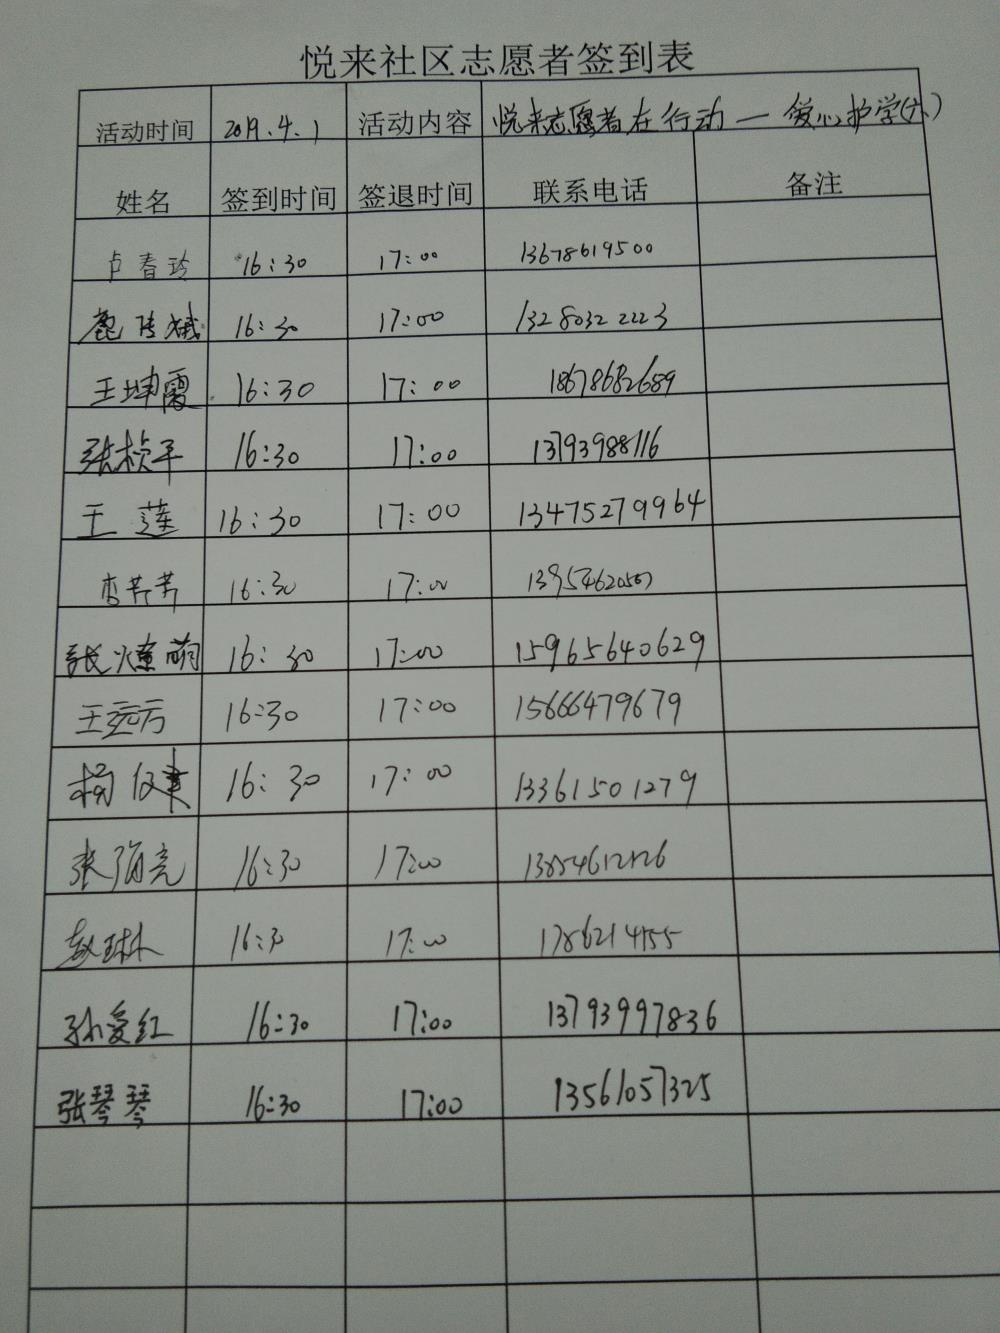 悦来社区志愿者签到表
活动时间 2019.4.1 活动内容 悦来志愿者在行动一爱心护学(六)
姓名 签到时间 签退时间 联系电话 备注
卢春玲 16:30 17:00 13678619500
16:30 17:00 13280322223
王坤霞 16:30 17:00 18678682689
张桢平 16:30 17:00 13793988116
王莲 16:30 17:00 13475279964
李芳芳 16:30 17:00
张燎萌 16:30 17:00 15965640629
王远方 16:30 17:00 15666479679
杨仪建 16:30 17:00 13361501279
张 亮 16:30 17:00
赵琳 16:30 17:00
孙爱红 16:30 17:00 13793997836
张琴琴 16:30 17:00 13561057325